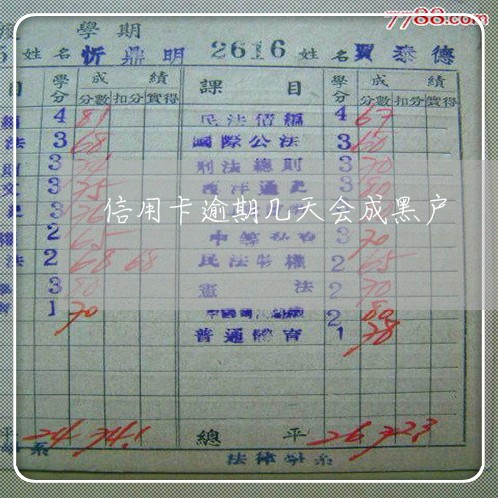 7788.com
學期
5 姓名 忻鼎明 2616 姓名 賈泰德
目 學分 成績 課目 學分 成績
分數 扣分 實得 分數 扣分 實得
4 81 民法債編 4 67
法 3 68 國際公法 3 60
3 刑法總則 3 70
3 75 西洋通史 3 80
信用卡逾期几天会成黑户
2 65 3 70
法 2 68 68 民法物權 2 65
3 80 憲法 2 70
1 70 2 80
普通體育 1 78
平 24 74.1 總平 26 72.3
系 法律學系